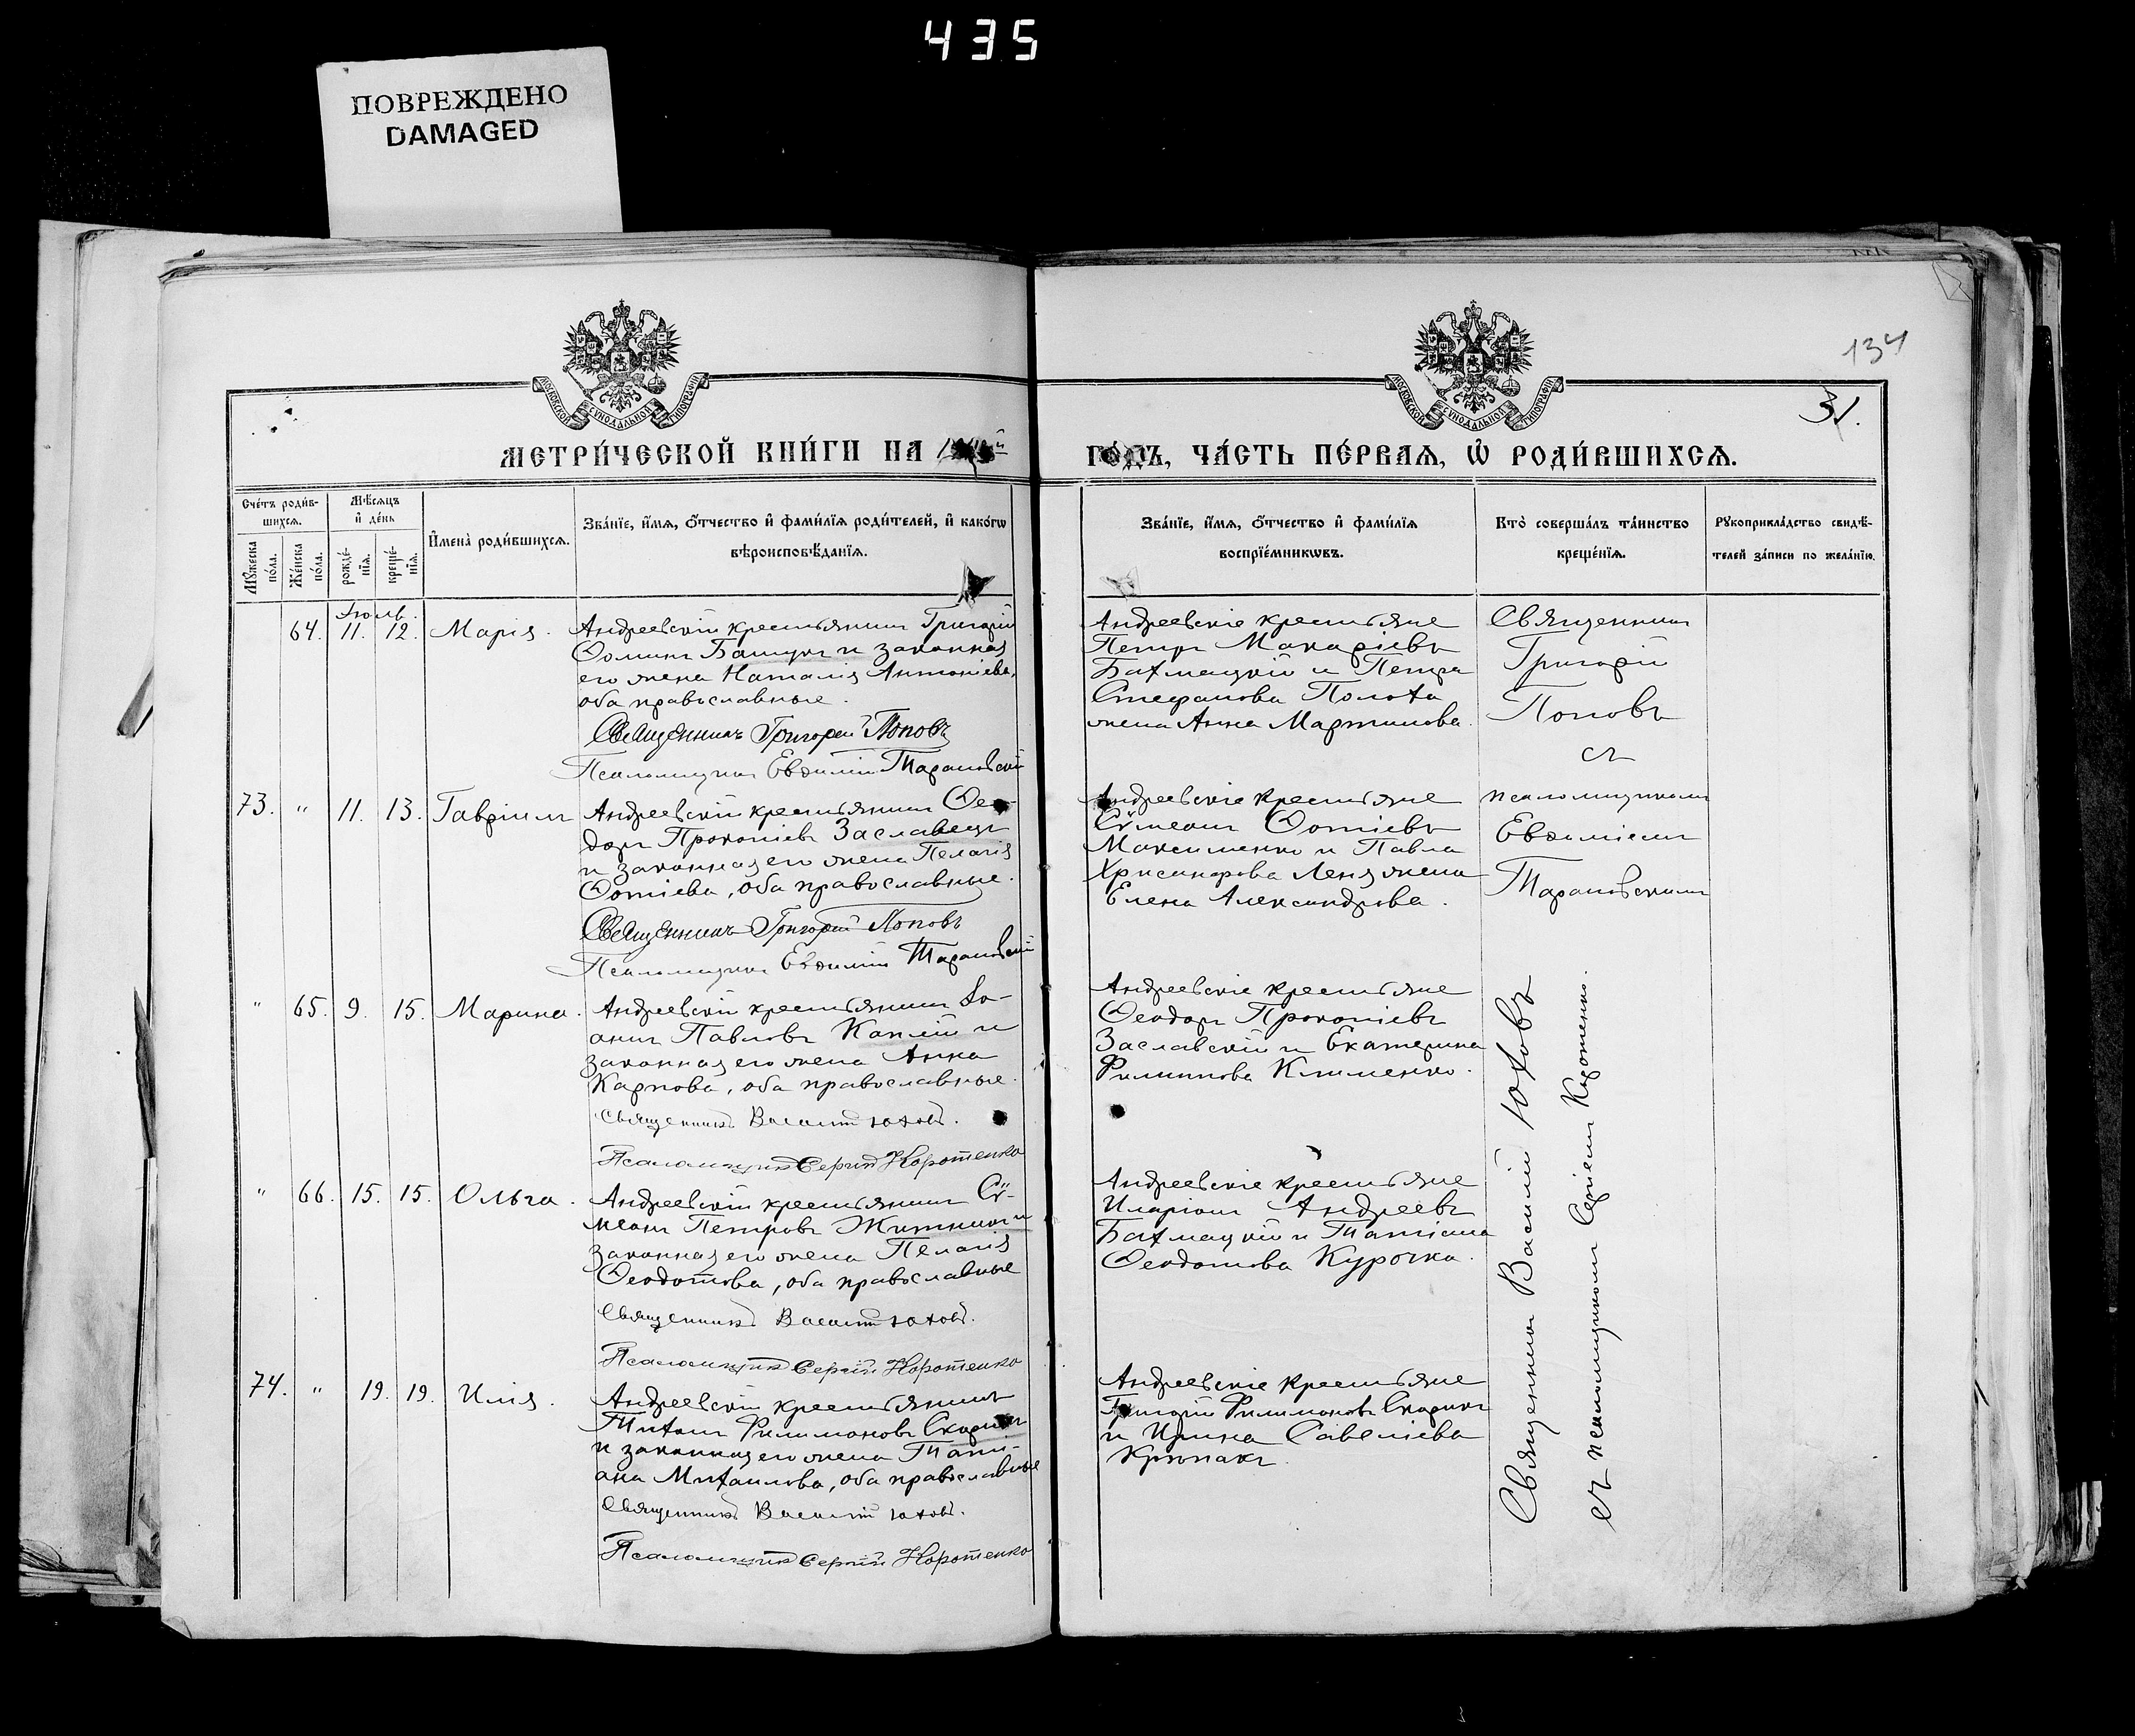 435
ПОВРЕЖДЕНО
DAMAGED
134
31.
МОСКОВСКОЙ СѴНОДАЛЬНОЙ ТИПОГРАФІИ
МОСКОВСКОЙ СѴНОДАЛЬНОЙ ТИПОГРАФІИ
МЕТРИ́ЧЕСКОЙ КНИ́ГИ НА
ГО́ДЪ, ЧА́СТЬ ПЕ́РВАѦ, Ѡ҆ РОДИ́ВШИХСѦ.
Сче́тъ роди́в-
шихсѧ.
Мꙋ́жеска
по́ла.
Же́нска
по́ла.
Мѣ́сѧцъ
и҆ де́нь
рожде́-
нїѧ.
креще́-
нїѧ.
И҆мена̀ роди́вшихсѧ.
Зва́нїе, и҆́мѧ, ѻ҆́тчество и҆ фами́лїѧ роди́телей, и҆ како́гѡ
вѣроисповѣ́данїѧ.
Зва́нїе, и҆́мѧ, ѻ҆́тчество и҆ фами́лїѧ
воспрїе́мникѡвъ.
Кто̀ соверша́лъ та́инство
креще́нїѧ.
Рꙋкоприкла́дство свидѣ́-
телей за́писи по жела́нїю.
Іюль.
64. 11. 12. Марія. Андреевскій крестьянинъ Григорій
Ѳоминъ Башукъ и законная
его жена Наталія Антоніева,
оба православные.
Священникъ Григорій Поповъ
Псаломщикъ Евѳимій Тарановскій
Андреевскіе крестьяне
Петръ Макаріевъ
Бахмацкій и Петра
Стефанова Полоха
жена Анна Мартинова.
Священникъ
Григорій
Поповъ
съ
73. " 11. 13. Гавріилъ Андреевскій крестьянинъ Ѳео-
доръ Прокопіевъ Заславецъ
и законная его жена Пелагія
Фотіева, оба православные.
Священникъ Григорій Поповъ
Псаломщикъ Евѳимій Тарановскій
Андреевскіе крестьяне
Сѵмеонъ Фотіевъ
Максименко и Павла
Хрисанфова Леня жена
Елена Александрова.
псаломщикомъ
Евѳиміемъ
Тарановскимъ
" 65. 9. 15. Марина. Андреевскій крестьянинъ Іо-
аннъ Павловъ Каплій и
законная его жена Анна
Карпова, оба православные.
Священникъ Василій Юховъ.
Псаломщикъ Сергій Коротенко
Андреевскіе крестьяне
Ѳеодоръ Прокопіевъ
Заславскій и Екатерина
Филиппова Клименко.
" 66. 15. 15. Ольга. Андреевскій крестьянинъ Сѵ-
меонъ Петровъ Житникъ и
законная его жена Пелагія
Ѳеодотова, оба православные
Священникъ Василій Юховъ.
Псаломщикъ Сергій Коротенко
Андреевскіе крестьяне
Иларіонъ Андреевъ
Бахмацкій и Татіана
Ѳеодотова Курочка.
74. " 19. 19. Илія. Андреевскій крестьянинъ
Титъ Филимоновъ Скорикъ
и законная его жена Тати-
ана Михаилова, оба православные
Священникъ Василій Юховъ.
Псаломщикъ Сергій Коротенко
Андреевскіе крестьяне
Григорій Филимоновъ Скорикъ
и Ирина Савеліева
Крюпакъ.
Священникъ Василій Юховъ
съ псаломщикомъ Сергіемъ Коротенко.